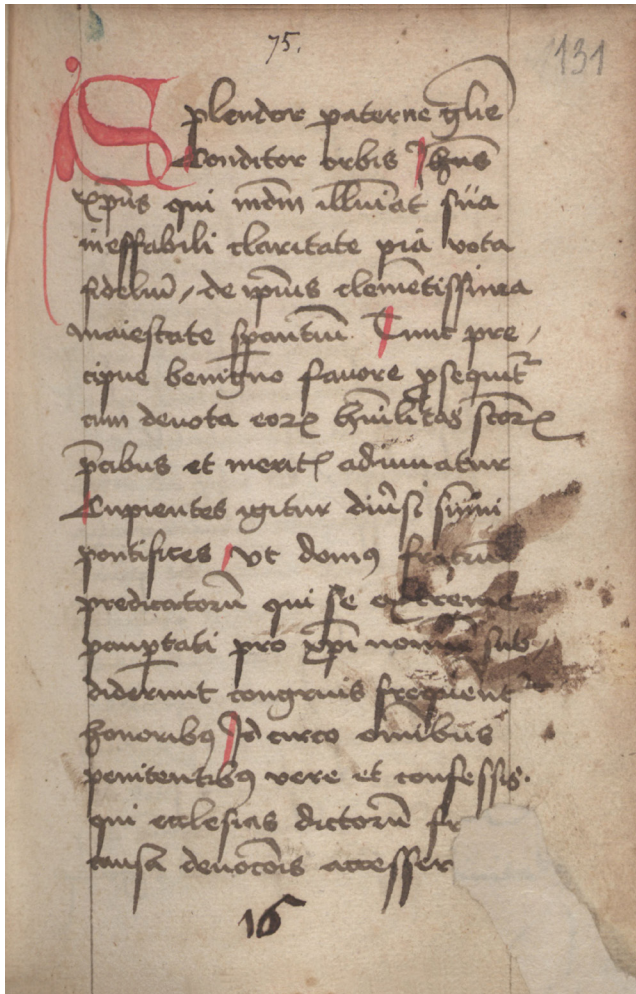 75.
131
Splendor paterne glie
Conditor orbis Ihus
xpus qui mdm illuiat sua
ineffabili claritate pia vota
fideliu / de ipius clemetissima
maiestate spantiu Tunc pre /
cipue benigno fauore psequit
cum deuota eorx huilitas scorx
pcibus et merit adiuuatur
Cupientes igitur diusi sumi
pontifices vt domus fratru
predicatoru qui se extreme
pauptati pro xpi nomine sub
diderunt congruis frequent
honoribus Id circo omibus
penitentibus vere et confessis.
qui ecclesias dictoru fr
causa deuocois accesser
16